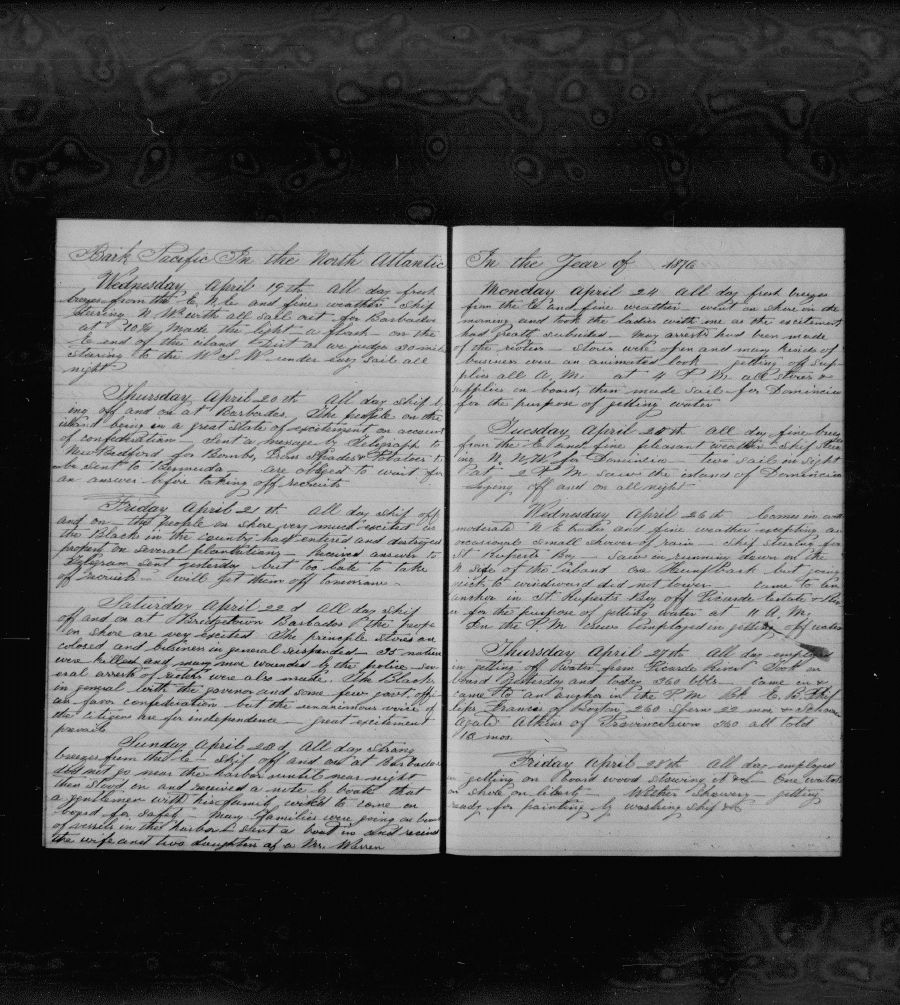 Bark Pacific In the North Atlantic
Wednesday April 19th all day fresh
breezes from the E N E and fine weather ship
steering N W with all sail out for Barbados
at 10 made the light a flash on the
E end of the island
steering to the W S W under easy sail all
night
Thursday April 20th All day ship ly
ing off and on at Barbados The people on the
island being in a great state of excitement on account
of confederation sent a message by telegraph to
New Bedford for Bombs, Irons & Potatoes to
be sent to Bermuda are obliged to wait for
an answer before taking off recruits
Friday April 21th all day ship off
and on the people on shore very much excited as
the Black in the country had entered and destroyed
property on several plantations Received answer to
telegram sent yesterday but too late to take
of recruits will get them off tomorrow
Saturday April 22d All day ship
off and on at Bridgetown Barbados the people
on shore are very excited The principle stores are
closed and business in general suspended 25 natives
were killed and many more wounded by the police sev
eral arrests of rioters were also made The Blacks
in general with the govenor and some few govt. offi
are favor confederation but the unanimous voice of
the citizen are for independence great excitement
prevails
Sunday April 23d All day strong
breezes from the E ship off and on at Barbados
did not go near the harbor until near night
then stood in and received a note by boats that
a gentleman with his family wished to come on
board for safety Many families were going on board
of vessels in the harbor sent a boat in and received
the wife and two daughters of a Mr. Warren
In the Year of 1876
Monday April 24 all day fresh breezes
from the E and fine weather went on shore in the
morning and took the ladies with me as the excitement
had greatly subsided Many arrests had been made
of the rioters Stores were open and many
business wore an animated look getting of sup
plies all A.M. at 4 P.M. all stores &
supplies on board, then made sail for Dominicia
for the purpose of getting water
Tuesday April 25th all day fine breezes
from the E and fine pleasant weather ship steer
ing N. N. W. for Dominicia two sail in sight
at 2 P.M. saw the island of Dominicia
laying off and on all night
Wednesday April 26th Comes in with
moderate N E trades and fine weather excepting an
occasional small shower of rain ship steering for
St Ruperts Bay saw in running down on the
N side of the island one Hump Back but going
quick to windward did not lower came to an
anchor in St Ruperts Bay off Picarde Estate &
for the purpose of getting water at 11 A.M.
In the P.M. crew employed in getting off water
Thursday April 27th All day employed
in getting of water from Picarde River Took on
board yesterday and today 360 bbls came in &
came to an anchor in the P.M. Bk E. B. Phil
lips Francis of Boston 260 sperm 22 mos & Schooner
Agate Atkins of Provincetown 360 all told
12 mos.
Friday April 28th All day employed
in getting on Board wood stowing it &c One watch
on shore on liberty Weather Showery getting
ready for painting by washing ship &c